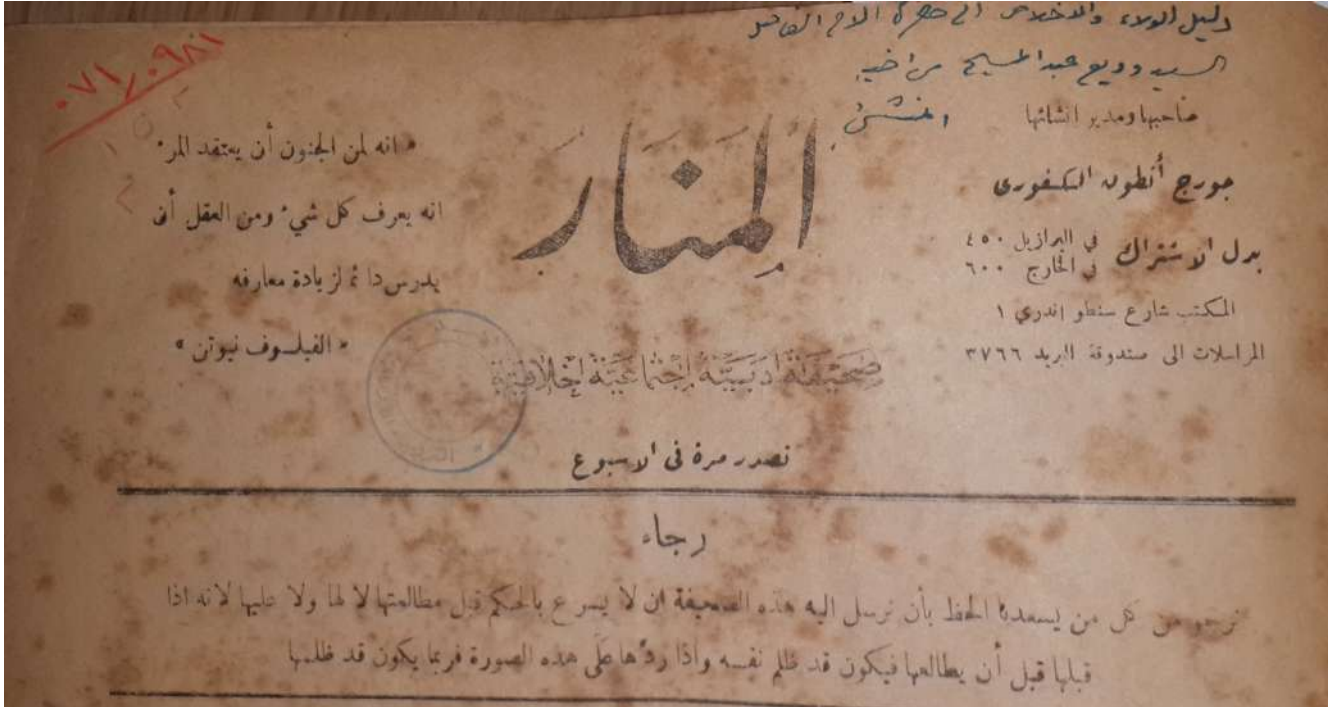 دليل الولاء والاخلاص الى حضرة الاخ الفاضل
السيد وديع عبد المسيح من اخيه
المنشئ
٠٧١/٠٩٨١
صاحبها ومدير انشائها
جورج أنطون الكفورى
بدل الاشتراك
في البرازيل ٤٥٠
في الخارج ٦٠٠
المكتب شارع سنطو اندري ١
المراسلات الى صندوقة البريد ٣٧٦٦
المنار
صحيفة ادبية اجتماعية اخلاقية
تصدر مرة فى الاسبوع
« انه لمن الجنون أن يعتقد المرء
انه يعرف كل شيء ومن العقل أن
يدرس دائماً لزيادة معارفه
« الفيلسوف نيوتن »
رجاء
نرجو من كل من يسعدنا الحظ بأن نرسل اليه هذه الصحيفة ان لا يسرع بالحكم قبل مطالعتها لا لها ولا عليها لانه اذا
قبلها قبل أن يطالعها فيكون قد ظلم نفسه واذا ردّها على هذه الصورة فربما يكون قد ظلمها